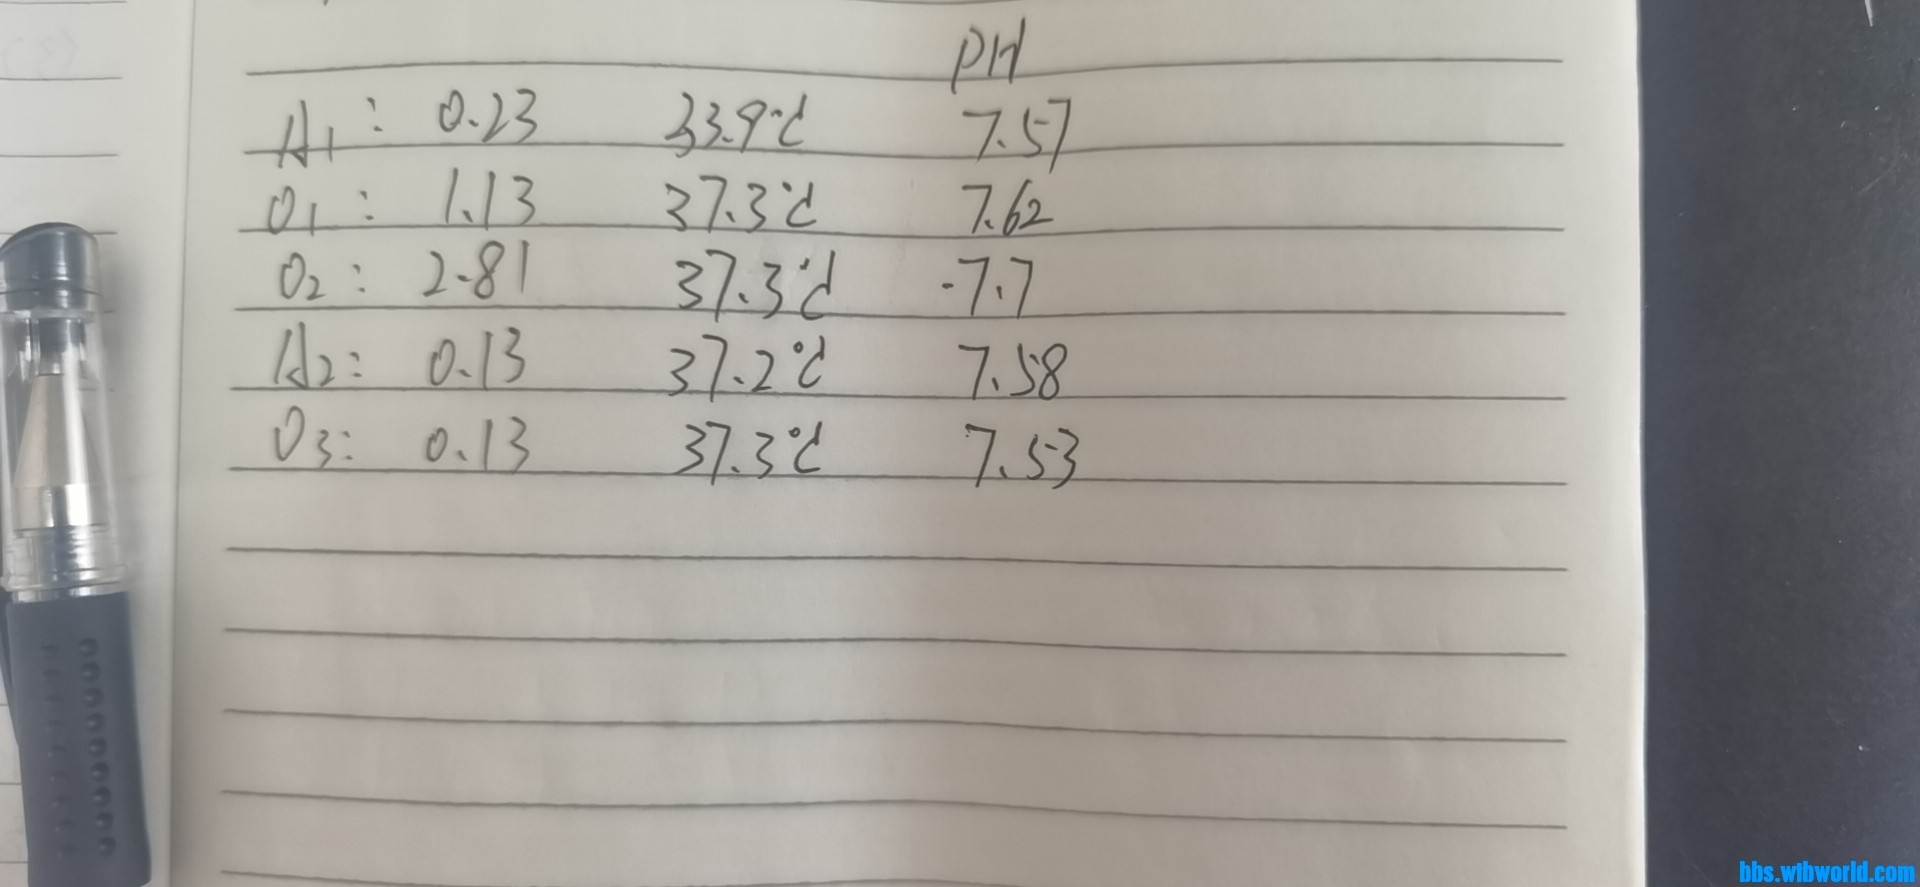 PH
A1: 0.23 33.9℃ 7.57
O1: 1.13 37.3℃ 7.62
O2: 2.81 37.3℃ -7.7
A2: 0.13 37.2℃ 7.58
O3: 0.13 37.3℃ 7.53
bbs.wibworld.com